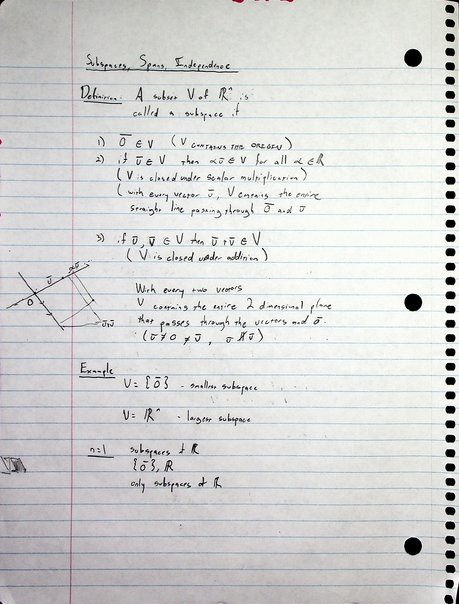 Subspaces, Spans, Independence
Definition: A subset V of ℝⁿ is
called a subspace if
1) 0̄ ∈ V (V contains the origin)
2) if ū ∈ V then αū ∈ V for all α ∈ ℝ
(V is closed under scalar multiplication)
(with every vector ū, V contains the entire
straight line passing through 0̄ and ū
3) if ū, v̄ ∈ V then ū+v̄ ∈ V
(V is closed under addition)
αū
ū
0
ū+v̄
With every two vectors
V contains the entire 2 dimensional plane
that passes through the vectors and 0̄.
Example
V = {0̄} - smallest subspace
V = ℝⁿ - largest subspace
n=1 subspaces of ℝ
{0̄}, ℝ
only subspaces of ℝ